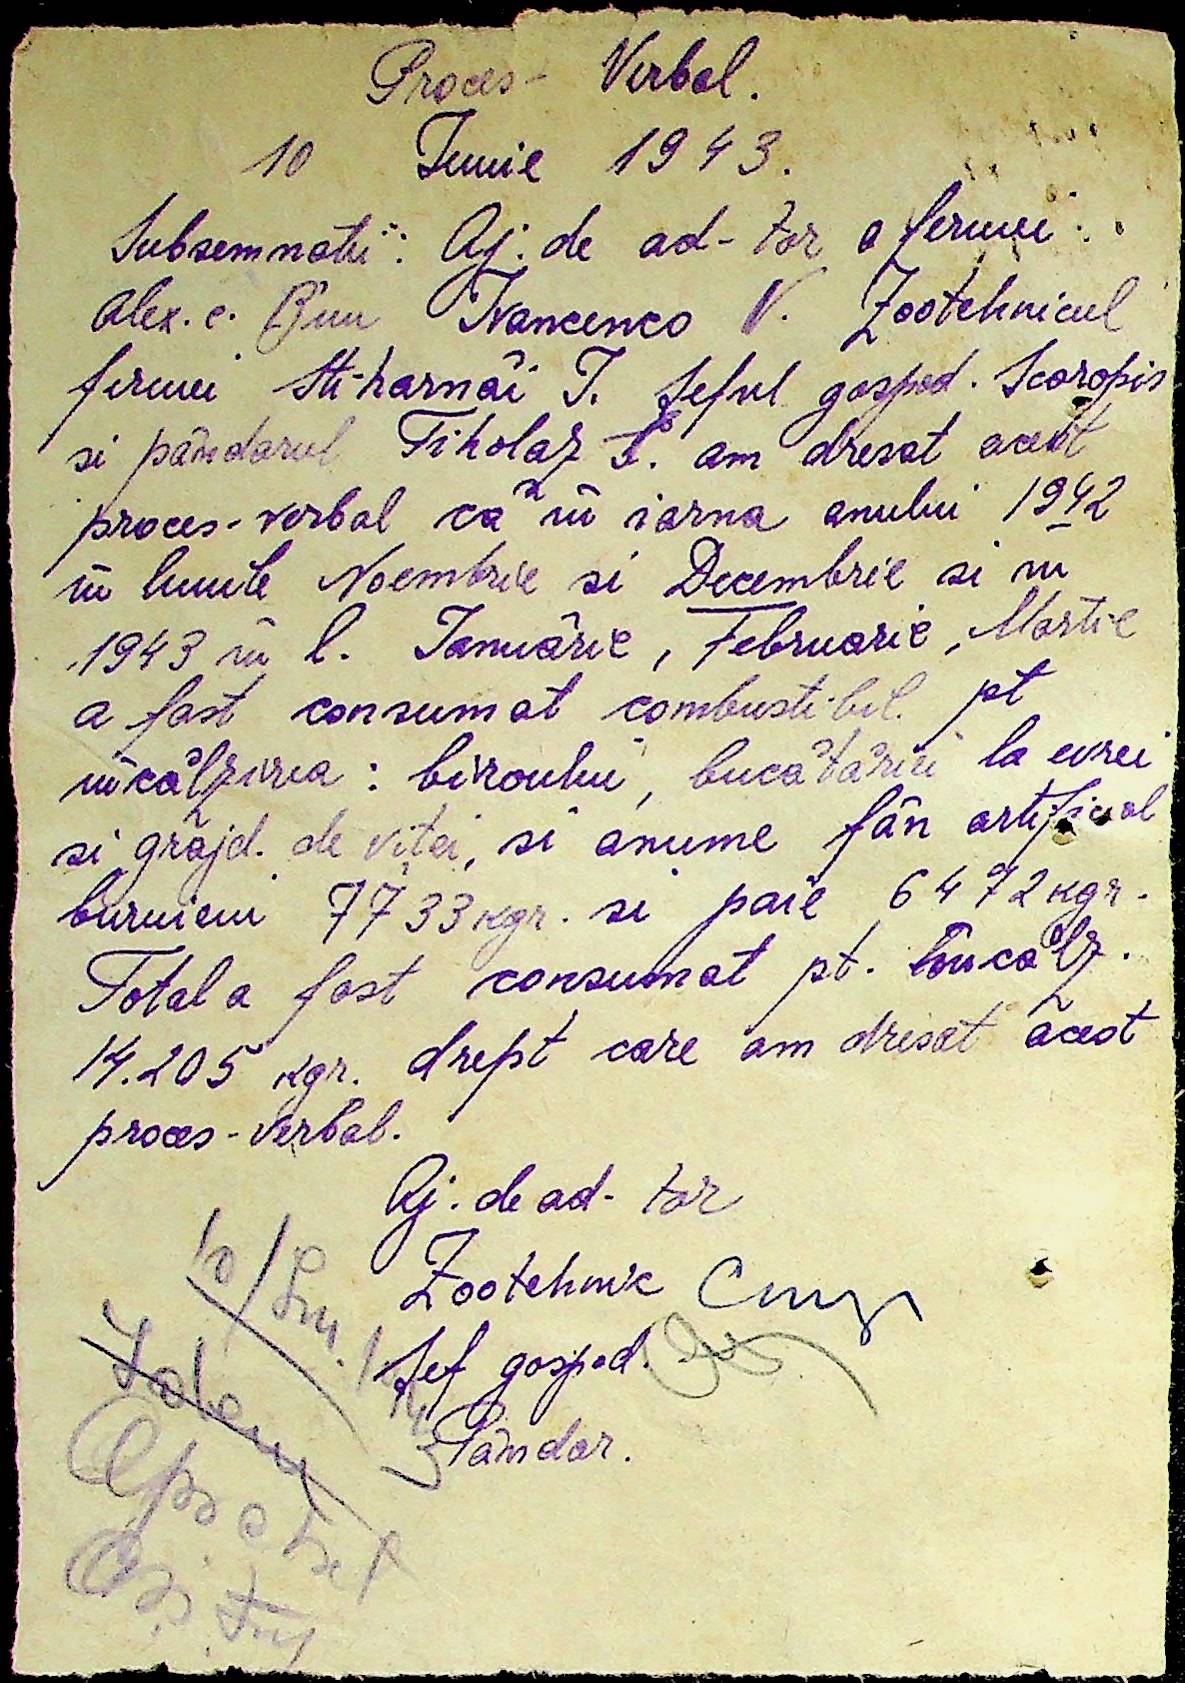 Proces- Verbal.
10 Iunie 1943.
Subsemnatii: Aj. de ad-tor a fermei
Alex. c. Bun Ivancenco V. Zootehnicul
fermei Sti-harnăi I. Șeful gospod. Scoropis
si pândarul Tiholaz S. am dresat acest
proces-verbal că în iarna anului 1942
în lunile Noembrie si Decembrie si in
1943 în l. Ianuărie, Februarie, Martie
a fost consumat combusti-bil. pt
incălzirea: biroului, bucătăriei la evrei
si grajd. de vitei, si anume fân artificial
burueni 7733 kgr. si paie 6472 kgr.
Total a fost consumat pt. încălz.
14.205 kgr. drept care am dresat acest
proces-verbal.
Aj. de ad-tor
Zootehnic
Șef gospod.
Pândar.
10/Iun. 1943